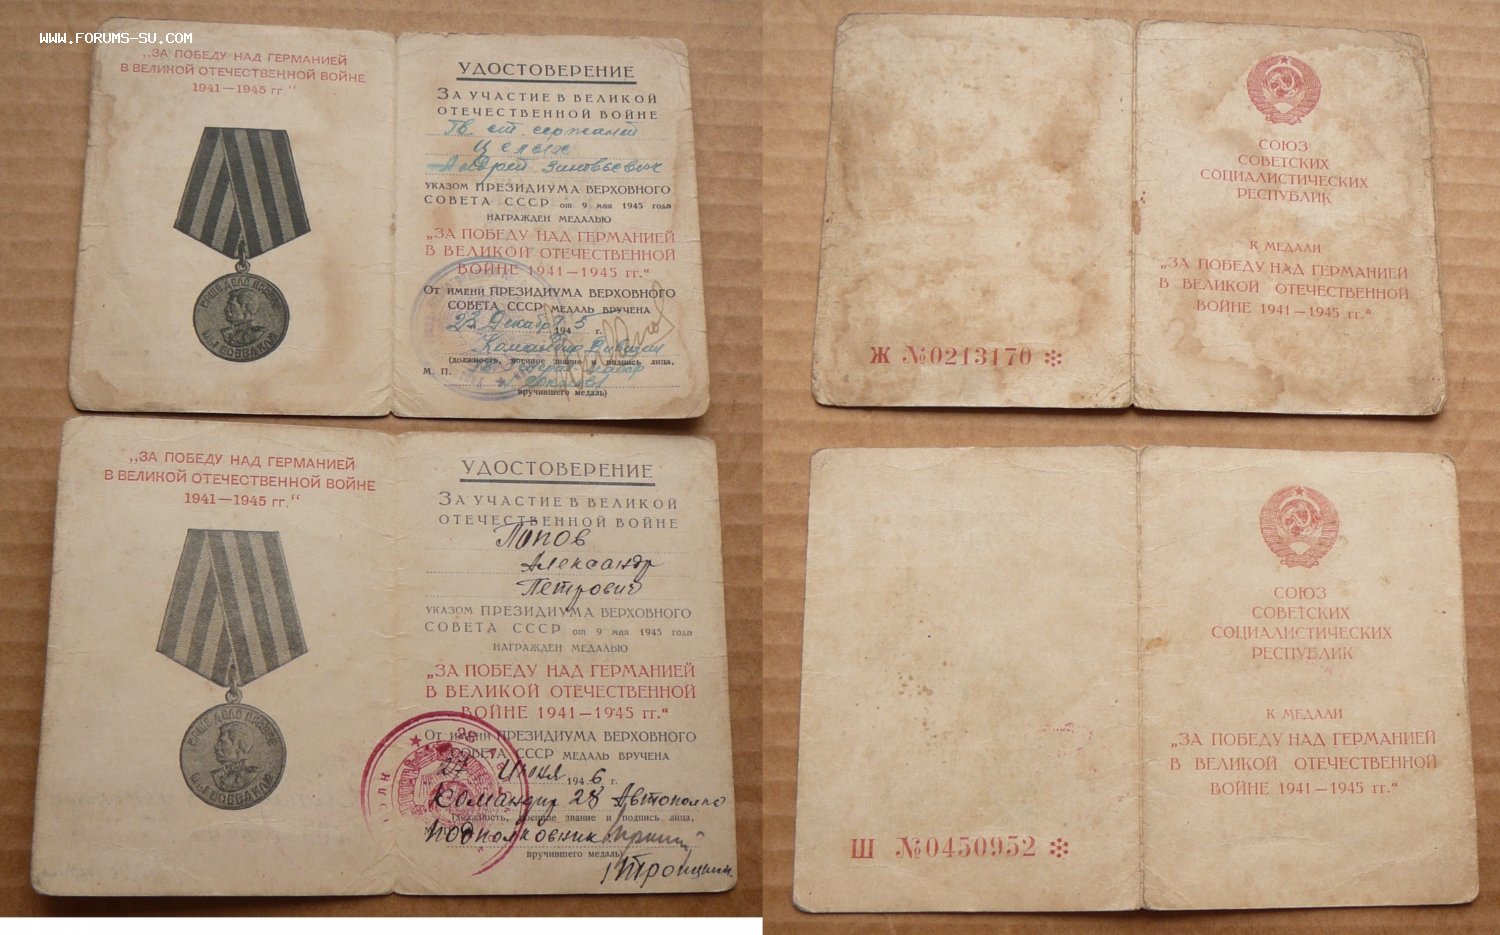 WWW.FORUMS-SU.COM
„ЗА ПОБЕДУ НАД ГЕРМАНИЕЙ
В ВЕЛИКОЙ ОТЕЧЕСТВЕННОЙ ВОЙНЕ
1941—1945 гг."
НАШЕ ДЕЛО ПРАВОЕ
МЫ ПОБЕДИЛИ
УДОСТОВЕРЕНИЕ
ЗА УЧАСТИЕ В ВЕЛИКОЙ
ОТЕЧЕСТВЕННОЙ ВОЙНЕ
Гв. ст. сержант
Целых
Андрей Зиновьевич
УКАЗОМ ПРЕЗИДИУМА ВЕРХОВНОГО
СОВЕТА СССР от 9 мая 1945 года
НАГРАЖДЕН МЕДАЛЬЮ
„ЗА ПОБЕДУ НАД ГЕРМАНИЕЙ
В ВЕЛИКОЙ ОТЕЧЕСТВЕННОЙ
ВОЙНЕ 1941—1945 гг."
ОТ ИМЕНИ ПРЕЗИДИУМА ВЕРХОВНОГО
СОВЕТА СССР МЕДАЛЬ ВРУЧЕНА
23 Декабря 1945 г.
Командир дивизии
(должность, военное звание и подпись лица,
М. П. Гв. Генерал-майор
вручившего медаль)
СОЮЗ
СОВЕТСКИХ
СОЦИАЛИСТИЧЕСКИХ
РЕСПУБЛИК
К МЕДАЛИ
„ЗА ПОБЕДУ НАД ГЕРМАНИЕЙ
В ВЕЛИКОЙ ОТЕЧЕСТВЕННОЙ
ВОЙНЕ 1941—1945 гг."
Ж №0213170
„ЗА ПОБЕДУ НАД ГЕРМАНИЕЙ
В ВЕЛИКОЙ ОТЕЧЕСТВЕННОЙ ВОЙНЕ
1941—1945 гг."
НАШЕ ДЕЛО ПРАВОЕ
МЫ ПОБЕДИЛИ
УДОСТОВЕРЕНИЕ
ЗА УЧАСТИЕ В ВЕЛИКОЙ
ОТЕЧЕСТВЕННОЙ ВОЙНЕ
Попов
Александр
Петрович
УКАЗОМ ПРЕЗИДИУМА ВЕРХОВНОГО
СОВЕТА СССР от 9 мая 1945 года
НАГРАЖДЕН МЕДАЛЬЮ
„ЗА ПОБЕДУ НАД ГЕРМАНИЕЙ
В ВЕЛИКОЙ ОТЕЧЕСТВЕННОЙ
ВОЙНЕ 1941—1945 гг."
ОТ ИМЕНИ ПРЕЗИДИУМА ВЕРХОВНОГО
СОВЕТА СССР МЕДАЛЬ ВРУЧЕНА
27 Июля 1946 г.
Командир 28 Автополка
(должность, военное звание и подпись лица,
подполковник
вручившего медаль)
/Троицкий
СОЮЗ
СОВЕТСКИХ
СОЦИАЛИСТИЧЕСКИХ
РЕСПУБЛИК
К МЕДАЛИ
„ЗА ПОБЕДУ НАД ГЕРМАНИЕЙ
В ВЕЛИКОЙ ОТЕЧЕСТВЕННОЙ
ВОЙНЕ 1941—1945 гг."
Ш №0450952